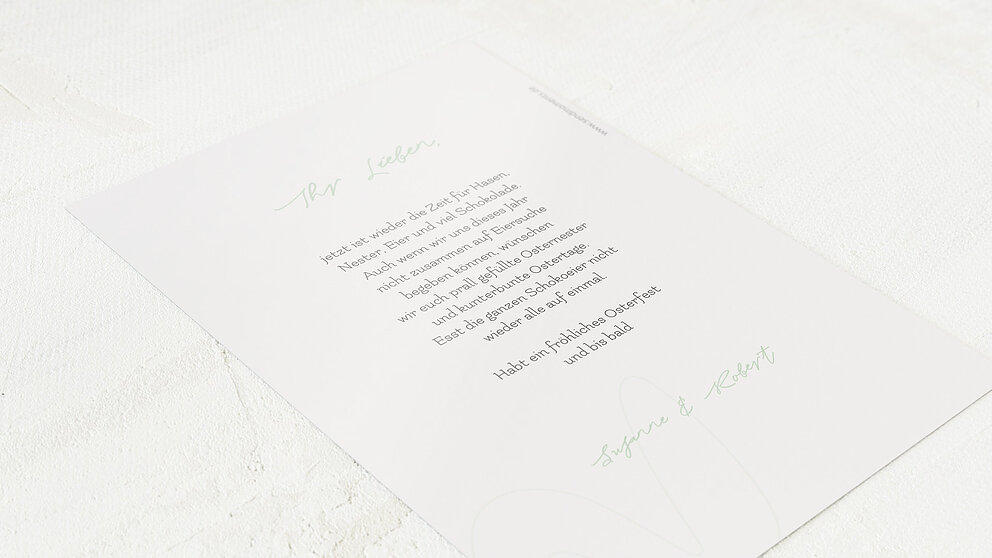 www.sendmoments.de
Ihr Lieben,
jetzt ist wieder die Zeit für Hasen,
Nester, Eier und viel Schokolade.
Auch wenn wir uns dieses Jahr
nicht zusammen auf Eiersuche
begeben können, wünschen
wir euch prall gefüllte Osternester
und kunterbunte Ostertage.
Esst die ganzen Schokoeier nicht
wieder alle auf einmal.
Habt ein fröhliches Osterfest
und bis bald
Susanne & Robert